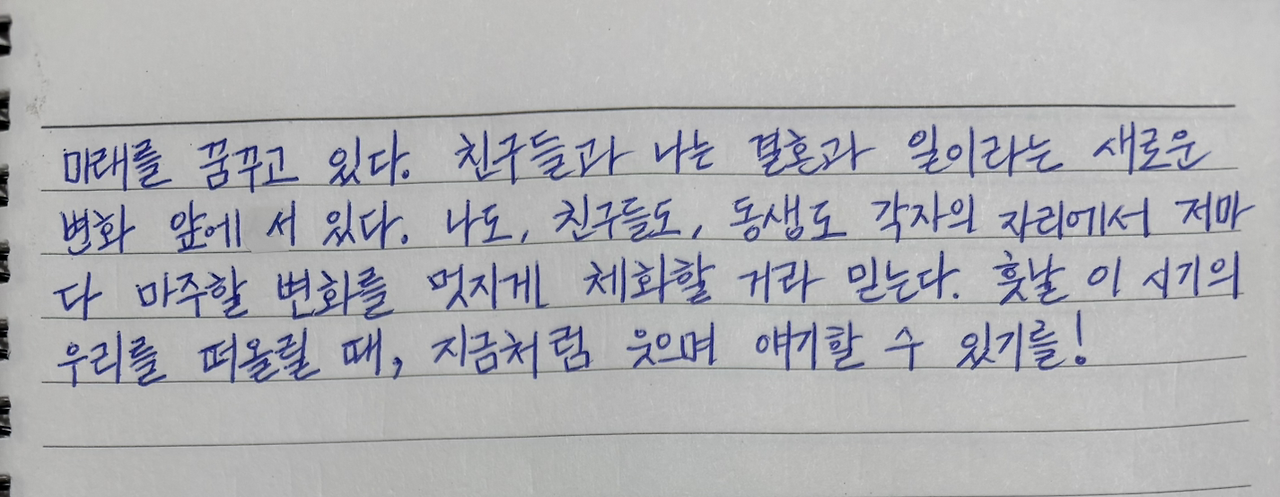 미래를 꿈꾸고 있다. 친구들과 나는 결혼과 일이라는 새로운
변화 앞에 서 있다. 나도, 친구들도, 동생도 각자의 자리에서 저마
다 마주할 변화를 멋지게 체화할 거라 믿는다. 훗날 이 시기의
우리를 떠올릴 때, 지금처럼 웃으며 얘기할 수 있기를!